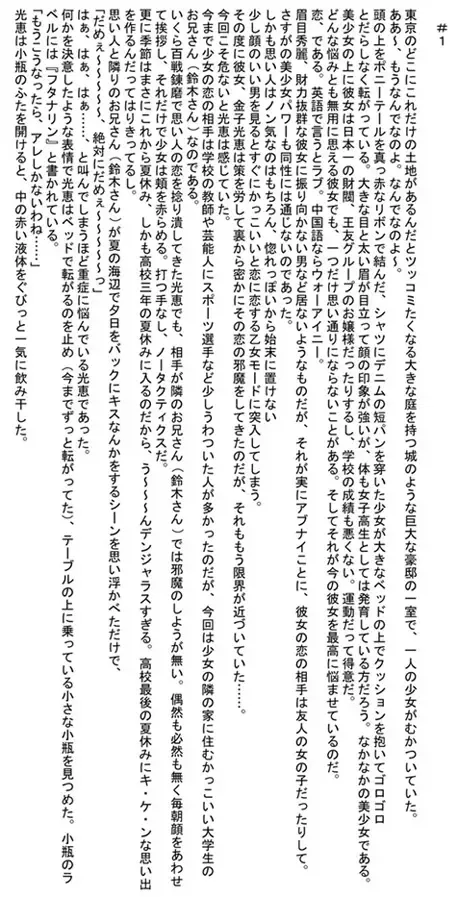 #1
東京のどこにこれだけの土地があるんだとツッコミたくなる大きな庭を持つ城のような巨大な豪邸の一室で、一人の少女がむかついていた。
ああ〜、もうなんでなのよ。なんでなのよ〜。
頭の上をポニーテールを真っ赤なリボンで結んだ、シャツにデニムの短パンを穿いた少女が大きなベッドの上でクッションを抱いてゴロゴロ
とだらしなく転がっている。大きな目と太い眉が目立って顔の印象が強いが、体も女子高生としては発育している方だろう。なかなかの美少女である。
美少女の上に彼女は日本一の財閥、王友グループのお嬢様だったりするし、学校の成績も悪くない。運動だって得意だ。
どんな悩みとも無用に思える彼女でも、一つだけ思い通りにならないことがある。そしてそれが今の彼女を最高に悩ませているのだ。
恋、である。英語で言うとラブ。中国語ならウォーアイニー。
眉目秀麗、財力抜群な彼女に振り向かない男など居ないようなものだが、それが実にアブナイことに、彼女の恋の相手は友人の女の子だったりして。
さすがの美少女パワーも同性には通じないのであった。
しかも思い人はノン気なのはもちろん、惚れっぽいから始末に置けない
少し顔のいい男を見るとすぐにかっこいいと恋に恋する乙女モードに突入してしまう。
その度に彼女、金子光恵は策を労して裏から密かにその恋の邪魔をしてきたのだが、それももう限界が近づいていた……。
今回こそ危ないと光恵は感じていた。
今まで少女の恋の相手は学校の教師や芸能人にスポーツ選手など少しうわついた人が多かったのだが、今回は少女の隣の家に住むかっこいい大学生の
お兄さん（鈴木さん）なのである。
いくら百戦錬磨で思い人の恋を捻り潰してきた光恵でも、相手が隣のお兄さん（鈴木さん）では邪魔のしようが無い。偶然も必然も無く毎朝顔をあわせ
て挨拶し、それだけで少女は頬を赤らめる。打つ手なし、ノータクティクスだ。
更に季節はまさにこれから夏休み、しかも高校三年の夏休みに入るのだから、う〜〜〜んデンジャラスすぎる。高校最後の夏休みにキ・ケ・ンな思い出
を作るんだってはりきってるし。
思い人と隣りのお兄さん（鈴木さん）が夏の海辺で夕日をバックにキスなんかをするシーンを思い浮かべただけで、
「だめぇ〜〜〜〜〜、絶対にだめぇ〜〜〜〜〜っ」
はぁ、はぁ、はぁ……、と叫んでしまうほど重症に悩んでいる光恵であった。
何かを決意したような表情で光恵はベッドで転がるのを止め（今までずっと転がってた）、テーブルの上に乗っている小さな小瓶を見つめた。小瓶のラ
ベルには『フタナリン』と書かれている。
「もうこうなったら、アレしかないわね……」
光恵は小瓶のふたを開けると、中の赤い液体をぐびっと一気に飲み干した。